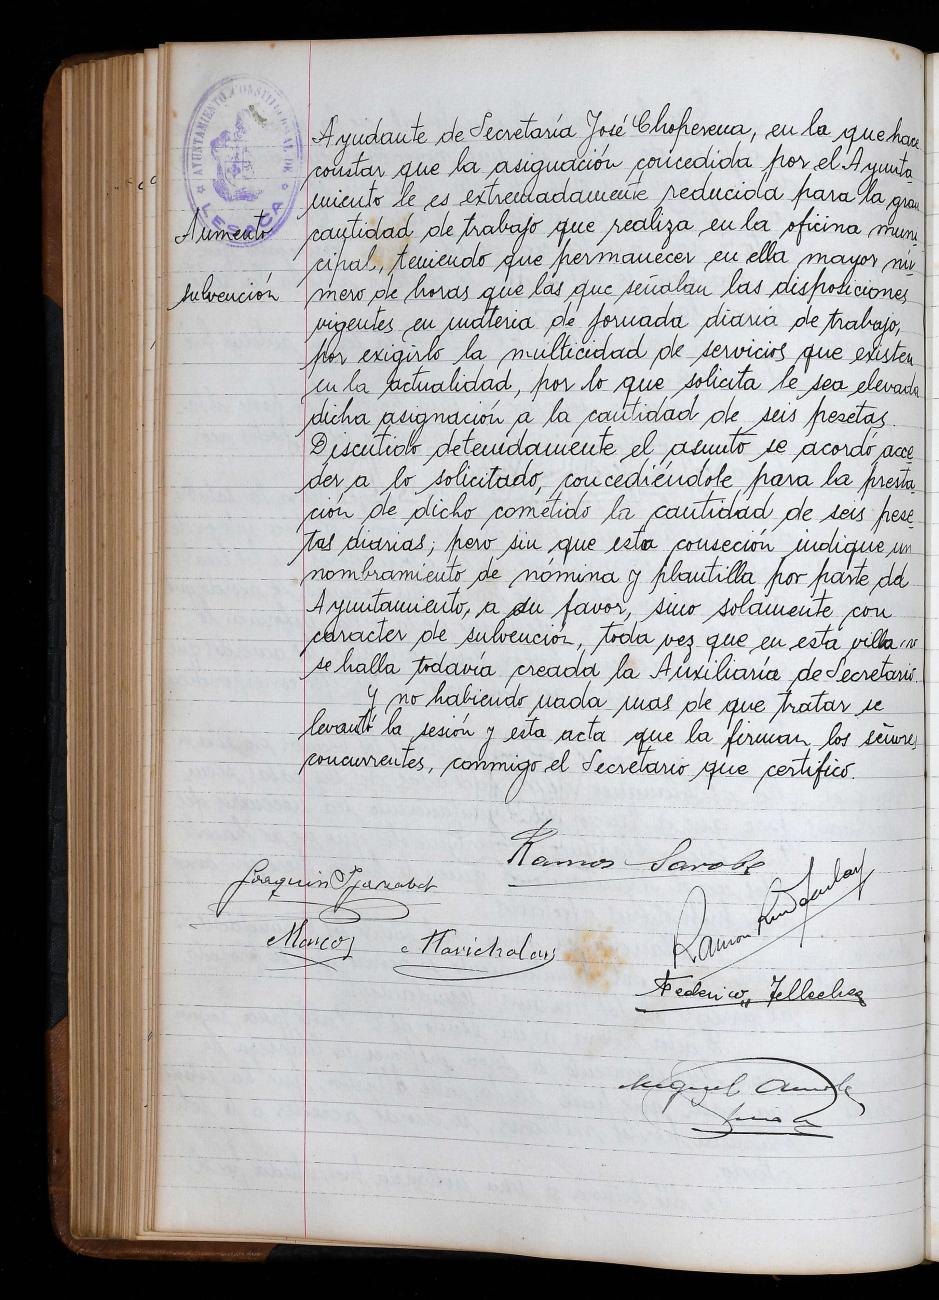 AYUNTAMIENTO CONSTITUCIONAL DE
LESACA
Aumento
subvención
Ayudante de Secretaría José Choperena, en la que hace
constar que la asignación concedida por el Ayunta-
miento le es extremadamente reducida para la gran
cantidad de trabajo que realiza en la oficina muni-
cipal, teniendo que permanecer en ella mayor nú-
mero de horas que las que señalan las disposiciones
vigentes en materia de jornada diaria de trabajo,
por exigirlo la multicidad de servicios que existen
en la actualidad, por lo que solicita le sea elevada
dicha asignación a la cantidad de seis pesetas.
Discutido detenidamente el asunto se acordó acce-
der a lo solicitado, concediéndole para la presta-
ción de dicho cometido la cantidad de seis pese-
tas diarias; pero sin que esta conseción indique un
nombramiento de nómina y plantilla por parte del
Ayuntamiento, a su favor, sino solamente con
caracter de subvención, toda vez que en esta villa no
se halla todavía creada la Auxiliaría de Secretario.
Y no habiendo nada mas de que tratar se
levantó la sesión y esta acta que la firman los señores
concurrentes, conmigo el Secretario que certifico.
Ramos Sarobe
Joaquin
Marcos Marichalar
Ramon
Federico Tellechea
Miguel